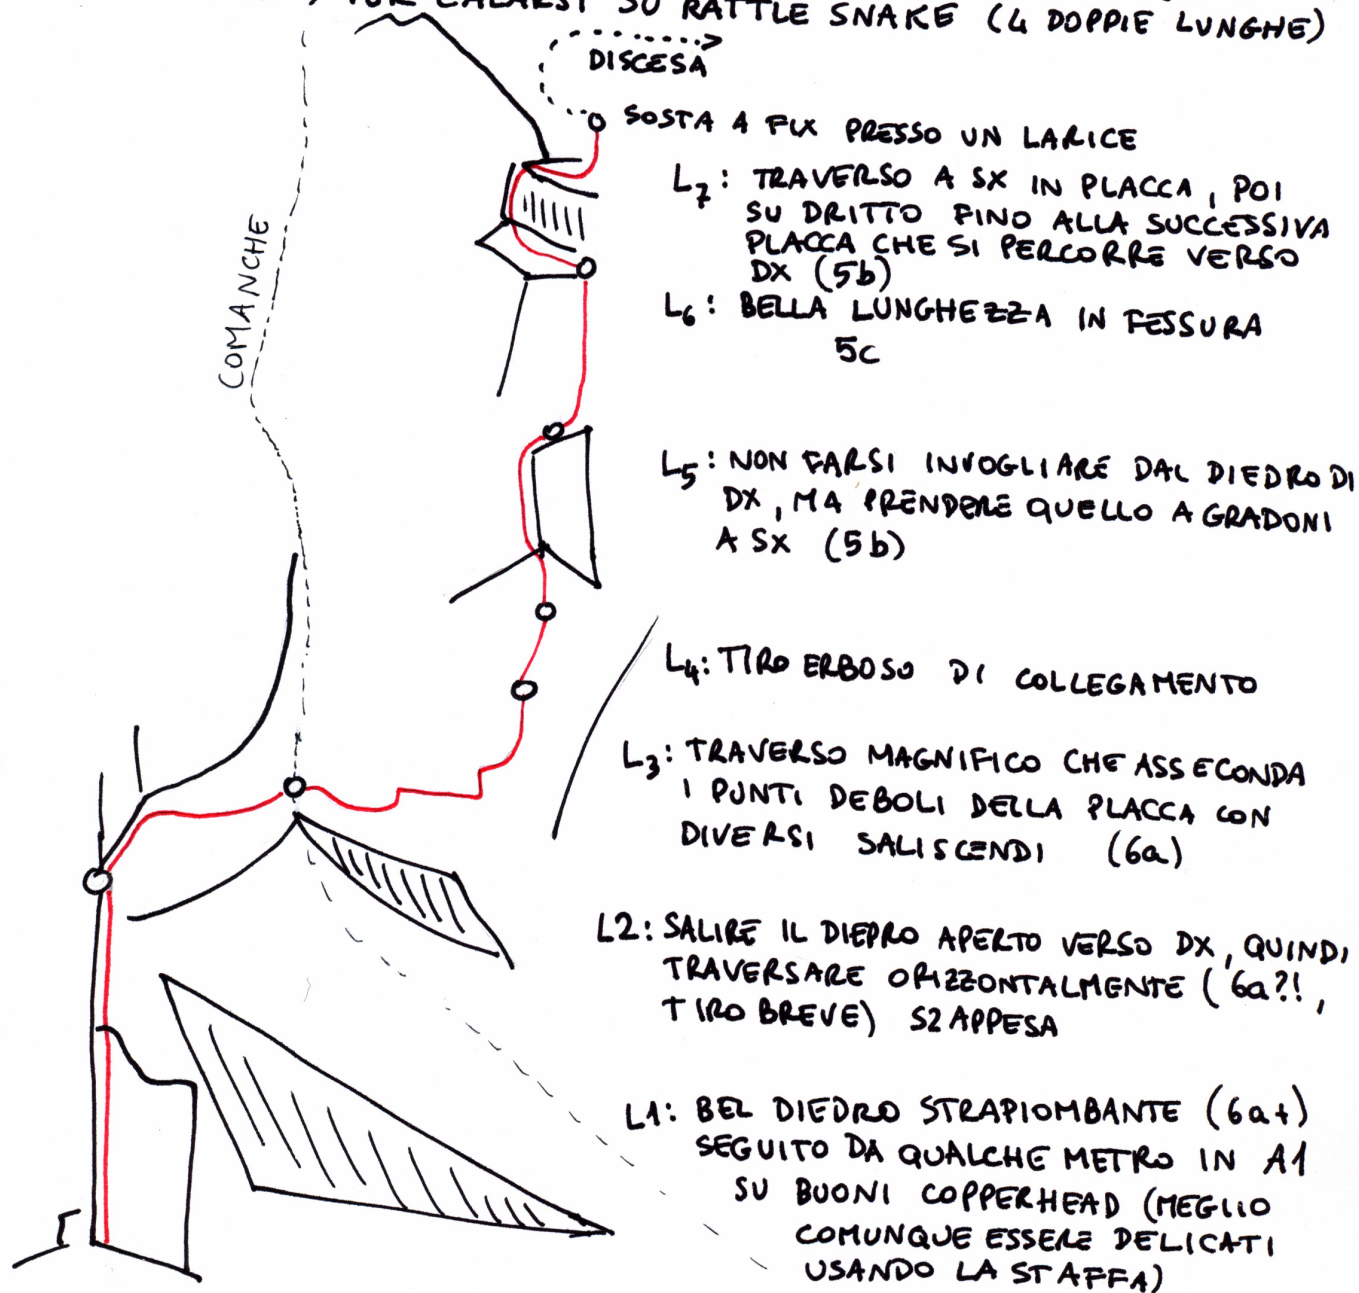 PER CALARSI SU RATTLE SNAKE (4 DOPPIE LUNGHE)
DISCESA
SOSTA A FIX PRESSO UN LARICE
L7: TRAVERSO A SX IN PLACCA, POI
SU DRITTO FINO ALLA SUCCESSIVA
PLACCA CHE SI PERCORRE VERSO
DX (5b)
COMANCHE
L6: BELLA LUNGHEZZA IN FESSURA
5c
L5: NON FARSI INVOGLIARE DAL DIEDRO DI
DX, MA PRENDERE QUELLO A GRADONI
A SX (5b)
L4: TIRO ERBOSO DI COLLEGAMENTO
L3: TRAVERSO MAGNIFICO CHE ASSECONDA
I PUNTI DEBOLI DELLA PLACCA CON
DIVERSI SALISCENDI (6a)
L2: SALIRE IL DIEDRO APERTO VERSO DX, QUINDI
TRAVERSARE ORIZZONTALMENTE (6a?!,
TIRO BREVE) S2 APPESA
L1: BEL DIEDRO STRAPIOMBANTE (6a+)
SEGUITO DA QUALCHE METRO IN A1
SU BUONI COPPERHEAD (MEGLIO
COMUNQUE ESSERE DELICATI
USANDO LA STAFFA)